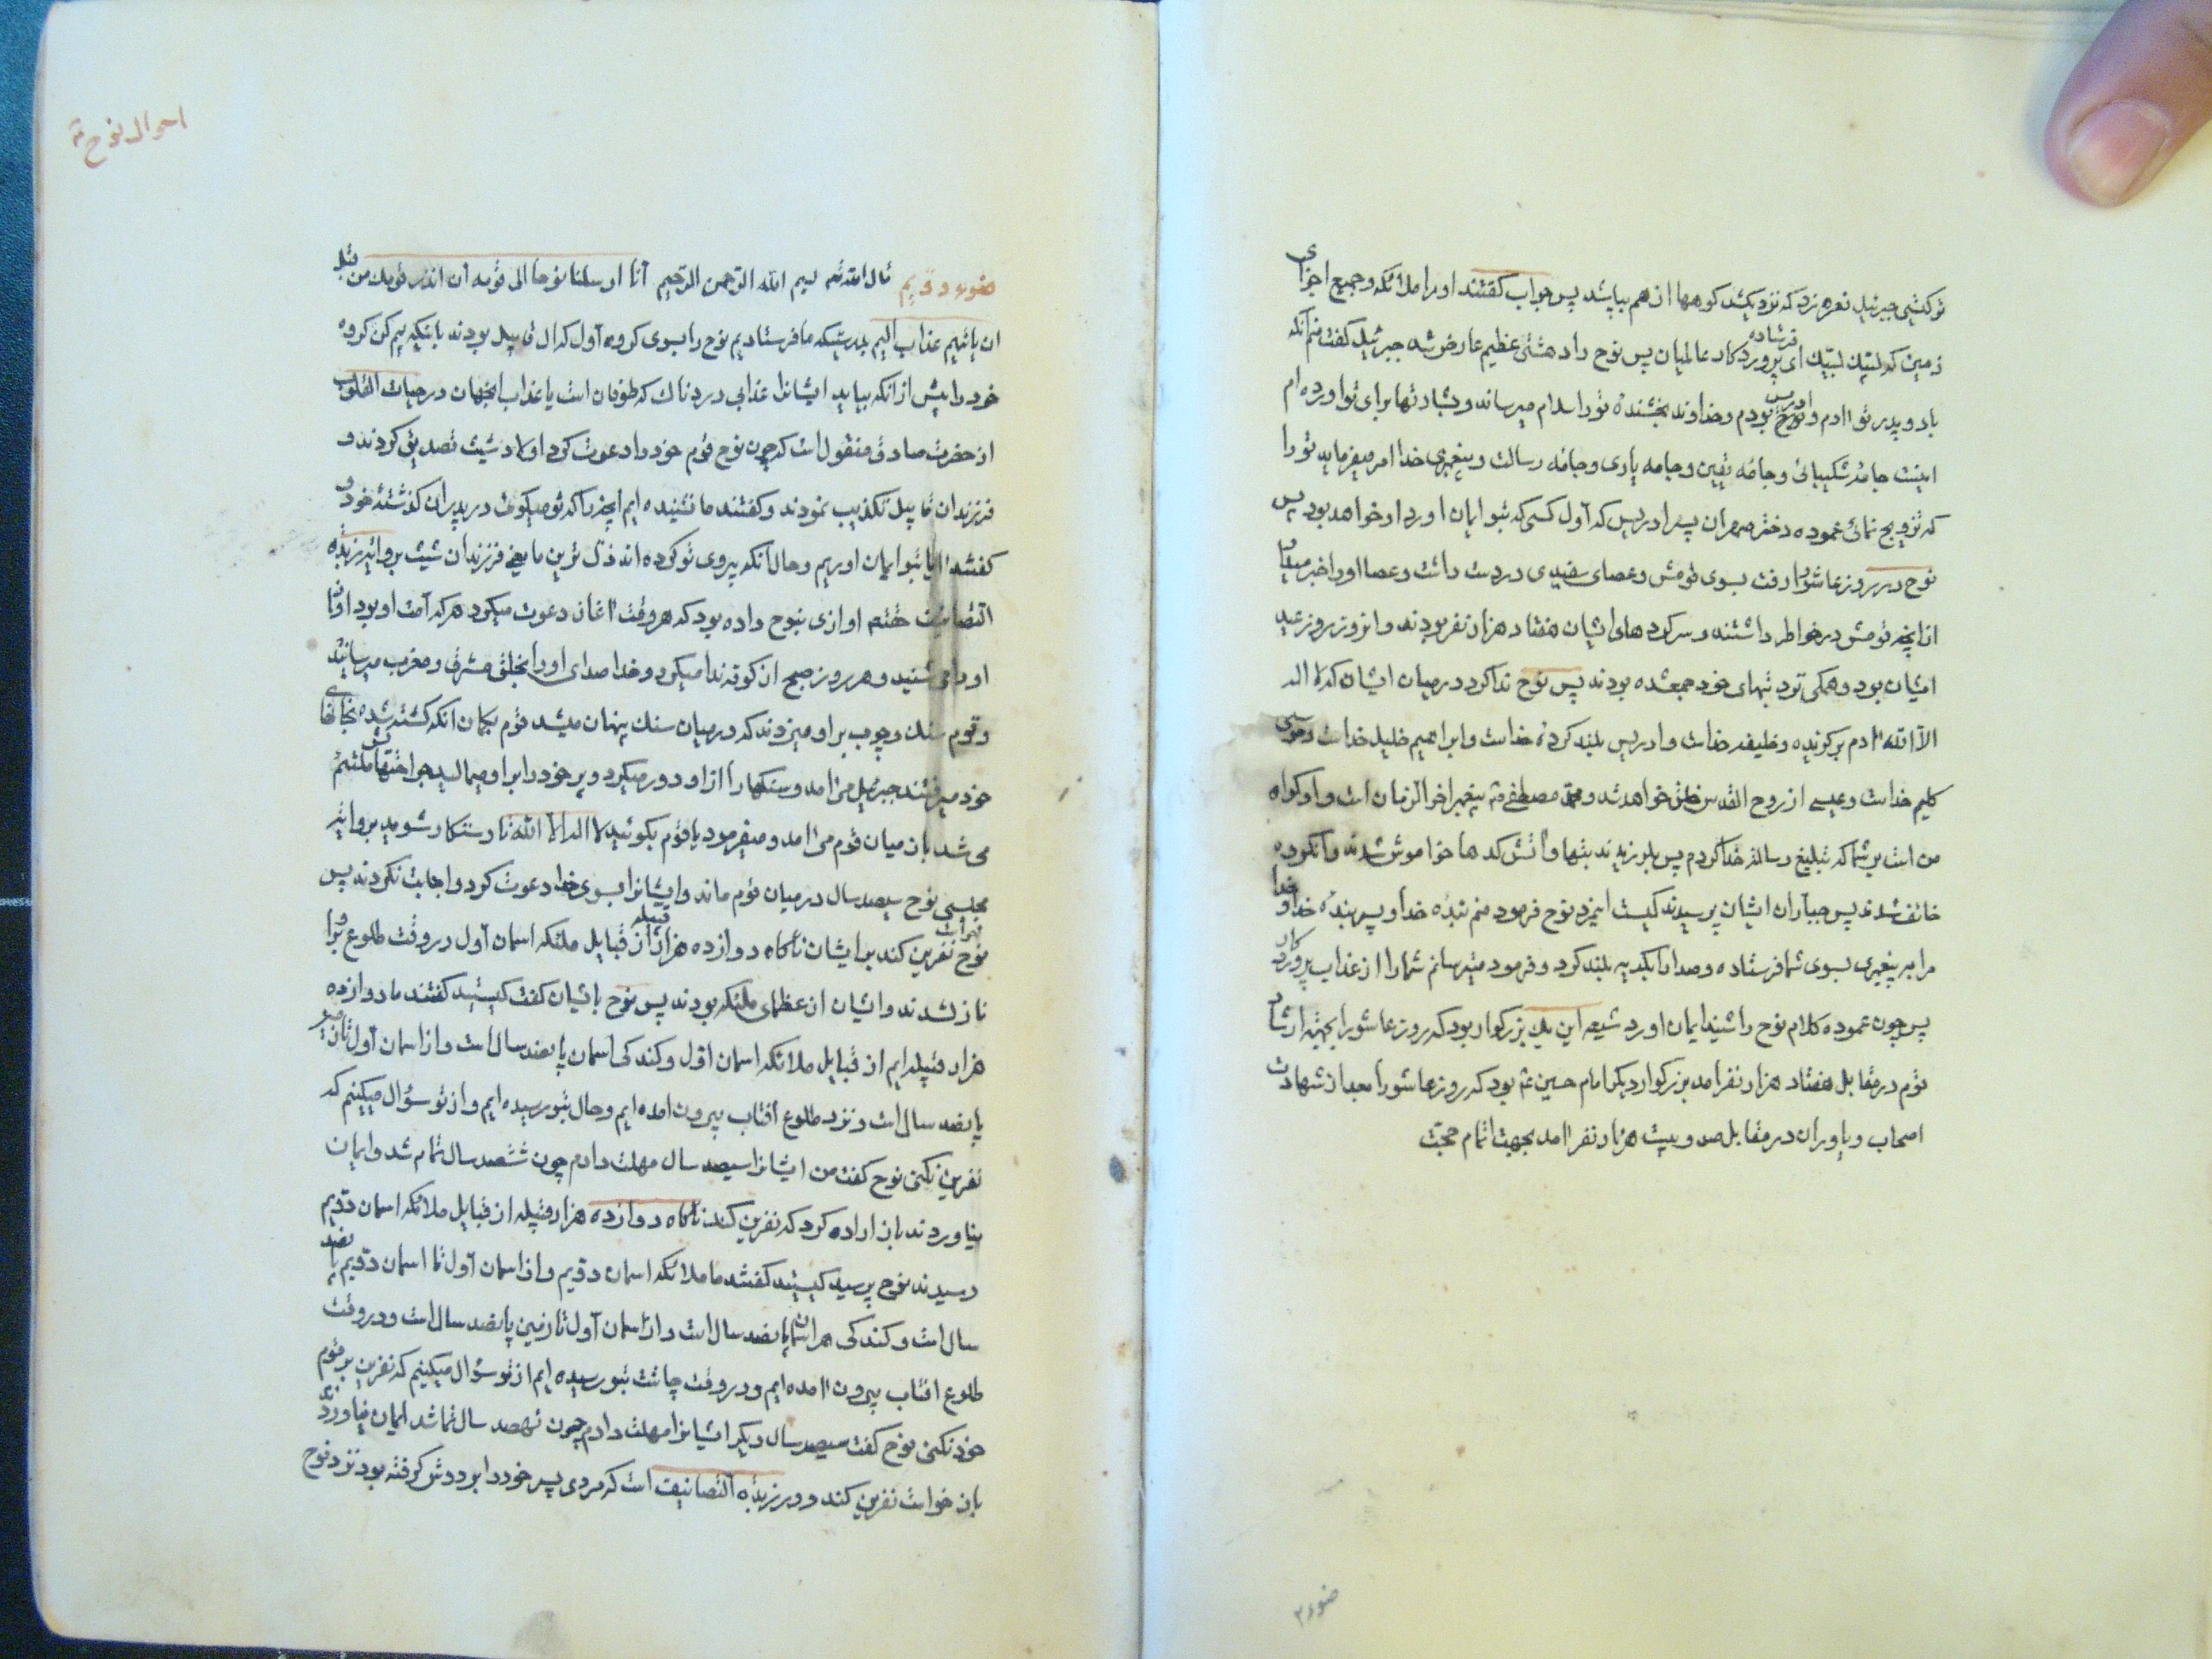 تو کیستی جبرئیل نعره زد که نزدیکشد کوهها از هم بپاشد پس جواب کفتند او را ملائکه و جمیع اجزای
زمین که لبیك لبیك ای فرستاده پروردکار عالمیان پس نوح را دهشتی عظیم عارض شد جبرئیل کفت منم آنکه
با دو پدر تو اادم و ادریس بودم و خداوند بخشنده تو را سلام میرساند و بشارتها برای تو اورده ام
اینست جامه شکیبائی و جامه یقین و جامه یاری و جامه رسالت و پیغمبری خدا امر میفرماید تو را
که تزویج نمائی عموده دختر صمران پسر ادریس که آول کسی که بتو ایمان اورد او خواهد بود پس
نوح در روز عاشورا رفت بسوی قومش و عصای سفیدی در دست داشت و عصا او را خبر میداد
از انچه قومش در خواطر داشتند و سرکردهای ایشان هفتاد هزار نفر بودند و انروز روز عید
ایشان بود و همکی نزد بتهای خود جمعشده بودند پس نوح ندا کرد در میان ایشان که لا اله
الا الله اادم برکزیده و خلیفه خداست و ادریس بلند کرده خداست و ابراهیم خلیل خداست و موسی
کلیم خداست و عیسی از روح القدس خلق خواهد شد و محمد مصطفی پیغمبر اخر الزمان است و او کواه
من است بر شما که تبلیغ رساله خدا کردم پس بلرزیدند بتها و اتش کدها خواموش شدند و انکروه
خائف شدند پس جباران ایشان پرسیدند کیست اینمرد نوح فرمود منم بنده خدا و پسر بنده خدا و خدا
مرا بر پیغمبری بسوی شما فرستاده و صدا را بکریه بلند کرد و فرمود میترسانم شما را از عذاب پروردکار
پس چون عموده کلام نوح را شنید ایمان اورد شیعه این یك بزرکوار بود که روز عاشورا بجهته ارشاد
قوم در مقابل هفتاد هزار نفر امد بزرکوار دیکر امام حسین بود که روز عاشورا بعد از شهادت
اصحاب و یاوران در مقابل صد و بیست هزار نفر اامد بجهت اتمام حجت
ضوء ۲
احوال نوح
ضوء دویم قال الله بسم الله الرحمن الرحیم آنا ارسلنا نوحا الی قومه آن انذر قومك من قبل
ان یاتیهم عذاب الیم بدرستیکه ما فرستادیم نوح را بسوی کروه آول که ال قابیل بودند باینکه بیم کن کروه
خود را پیش از انکه بیاید ایشانرا عذابی دردناك که طوفان است یا عذاب انجهان در حیات القلوب
از حضرت صادق منقول است که چون نوح قوم خود را دعوت کرد اولاد شیث تصدیق کردند و
فرزندان قابیل تکذیب نمودند و کفتند ما نشنیده ایم انچه را که تو میکوئی در پدران کذشته خود و
کفتند اایا بتو ایمان اوریم و حال آنکه پیروی تو کرده اند ذل ترین ما یعنی فرزندان شیث بروایت زبده
التصانیف ختم اوازی بنوح داده بود که هر وقت اغاز دعوت میکرد هر که آمت او بود اواز
او را می شنید و هر روز صبح از کوفه ندا میکرد و خدا صدای او را بخلق مشرق و مغرب میرسانید
و قوم سنك و چوب بر او میزدند که در میان سنك پنهان میشد قوم بکمان انکه کشته شده بخانهای
خود میرفتند جبرئیل می اامد و سنکها را از او دور میکرد و پر خود را بر او میمالید جراحتهاش ملتئم
می شد باز میان قوم می اامد و میفرمود یا قوم بکوئید لا اله الا الله تا رستکار شوید بروایت
مجلسی نوح سیصد سال در میان قوم ماند و ایشانرا بسوی خدا دعوت کرد و اجابت نکردند پس
نوح خواست نفرین کند بر ایشان ناکاه دوازده هزار قبیله از قبایل ملئکه اسمان آول در وقت طلوع بر او
نازلشدند و ایشان از عظمای ملئکه بودند پس نوح بایشان کفت کیستید کفتند ما دوازده
هزار قبیله ایم از قبایل ملائکه اسمان اول و کندکی اسمان پانصد سال است و از اسمان آول تا زمین
پانصد سال است و نزد طلوع آفتاب بیرون امده ایم و حال بتو رسیده ایم و از تو سؤال میکنیم که
نفرین نکنی نوح کفت من ایشانرا سیصد سال مهلت دادم چون ششصد سال تمام شد و ایمان
نیاوردند باز اراده کرد که نفرین کند ناکاه دوازده هزار قبیله از قبایل ملائکه اسمان دویم
رسیدند نوح پرسید کیستید کفتند ما ملائکه اسمان دویم و از اسمان آول تا اسمان دویم پانصد
سال است و کندکی هر اسمان پانصد سال است و از اسمان آول تا زمین پانصد سال است و در وقت
طلوع افتاب بیرون اامده ایم و در وقت چاشت بتو رسیده ایم از تو سؤال میکنیم که نفرین بر قوم
خود نکنی نوح کفت سیصد سال دیکر ایشانرا مهلت دادم چون نهصد سال تما شد ایمان نیاوردند
باز خواست نفرین کند و در زبده التصانیف است که مردی پسر خود را بر دوش کرفته بود نزد نوح